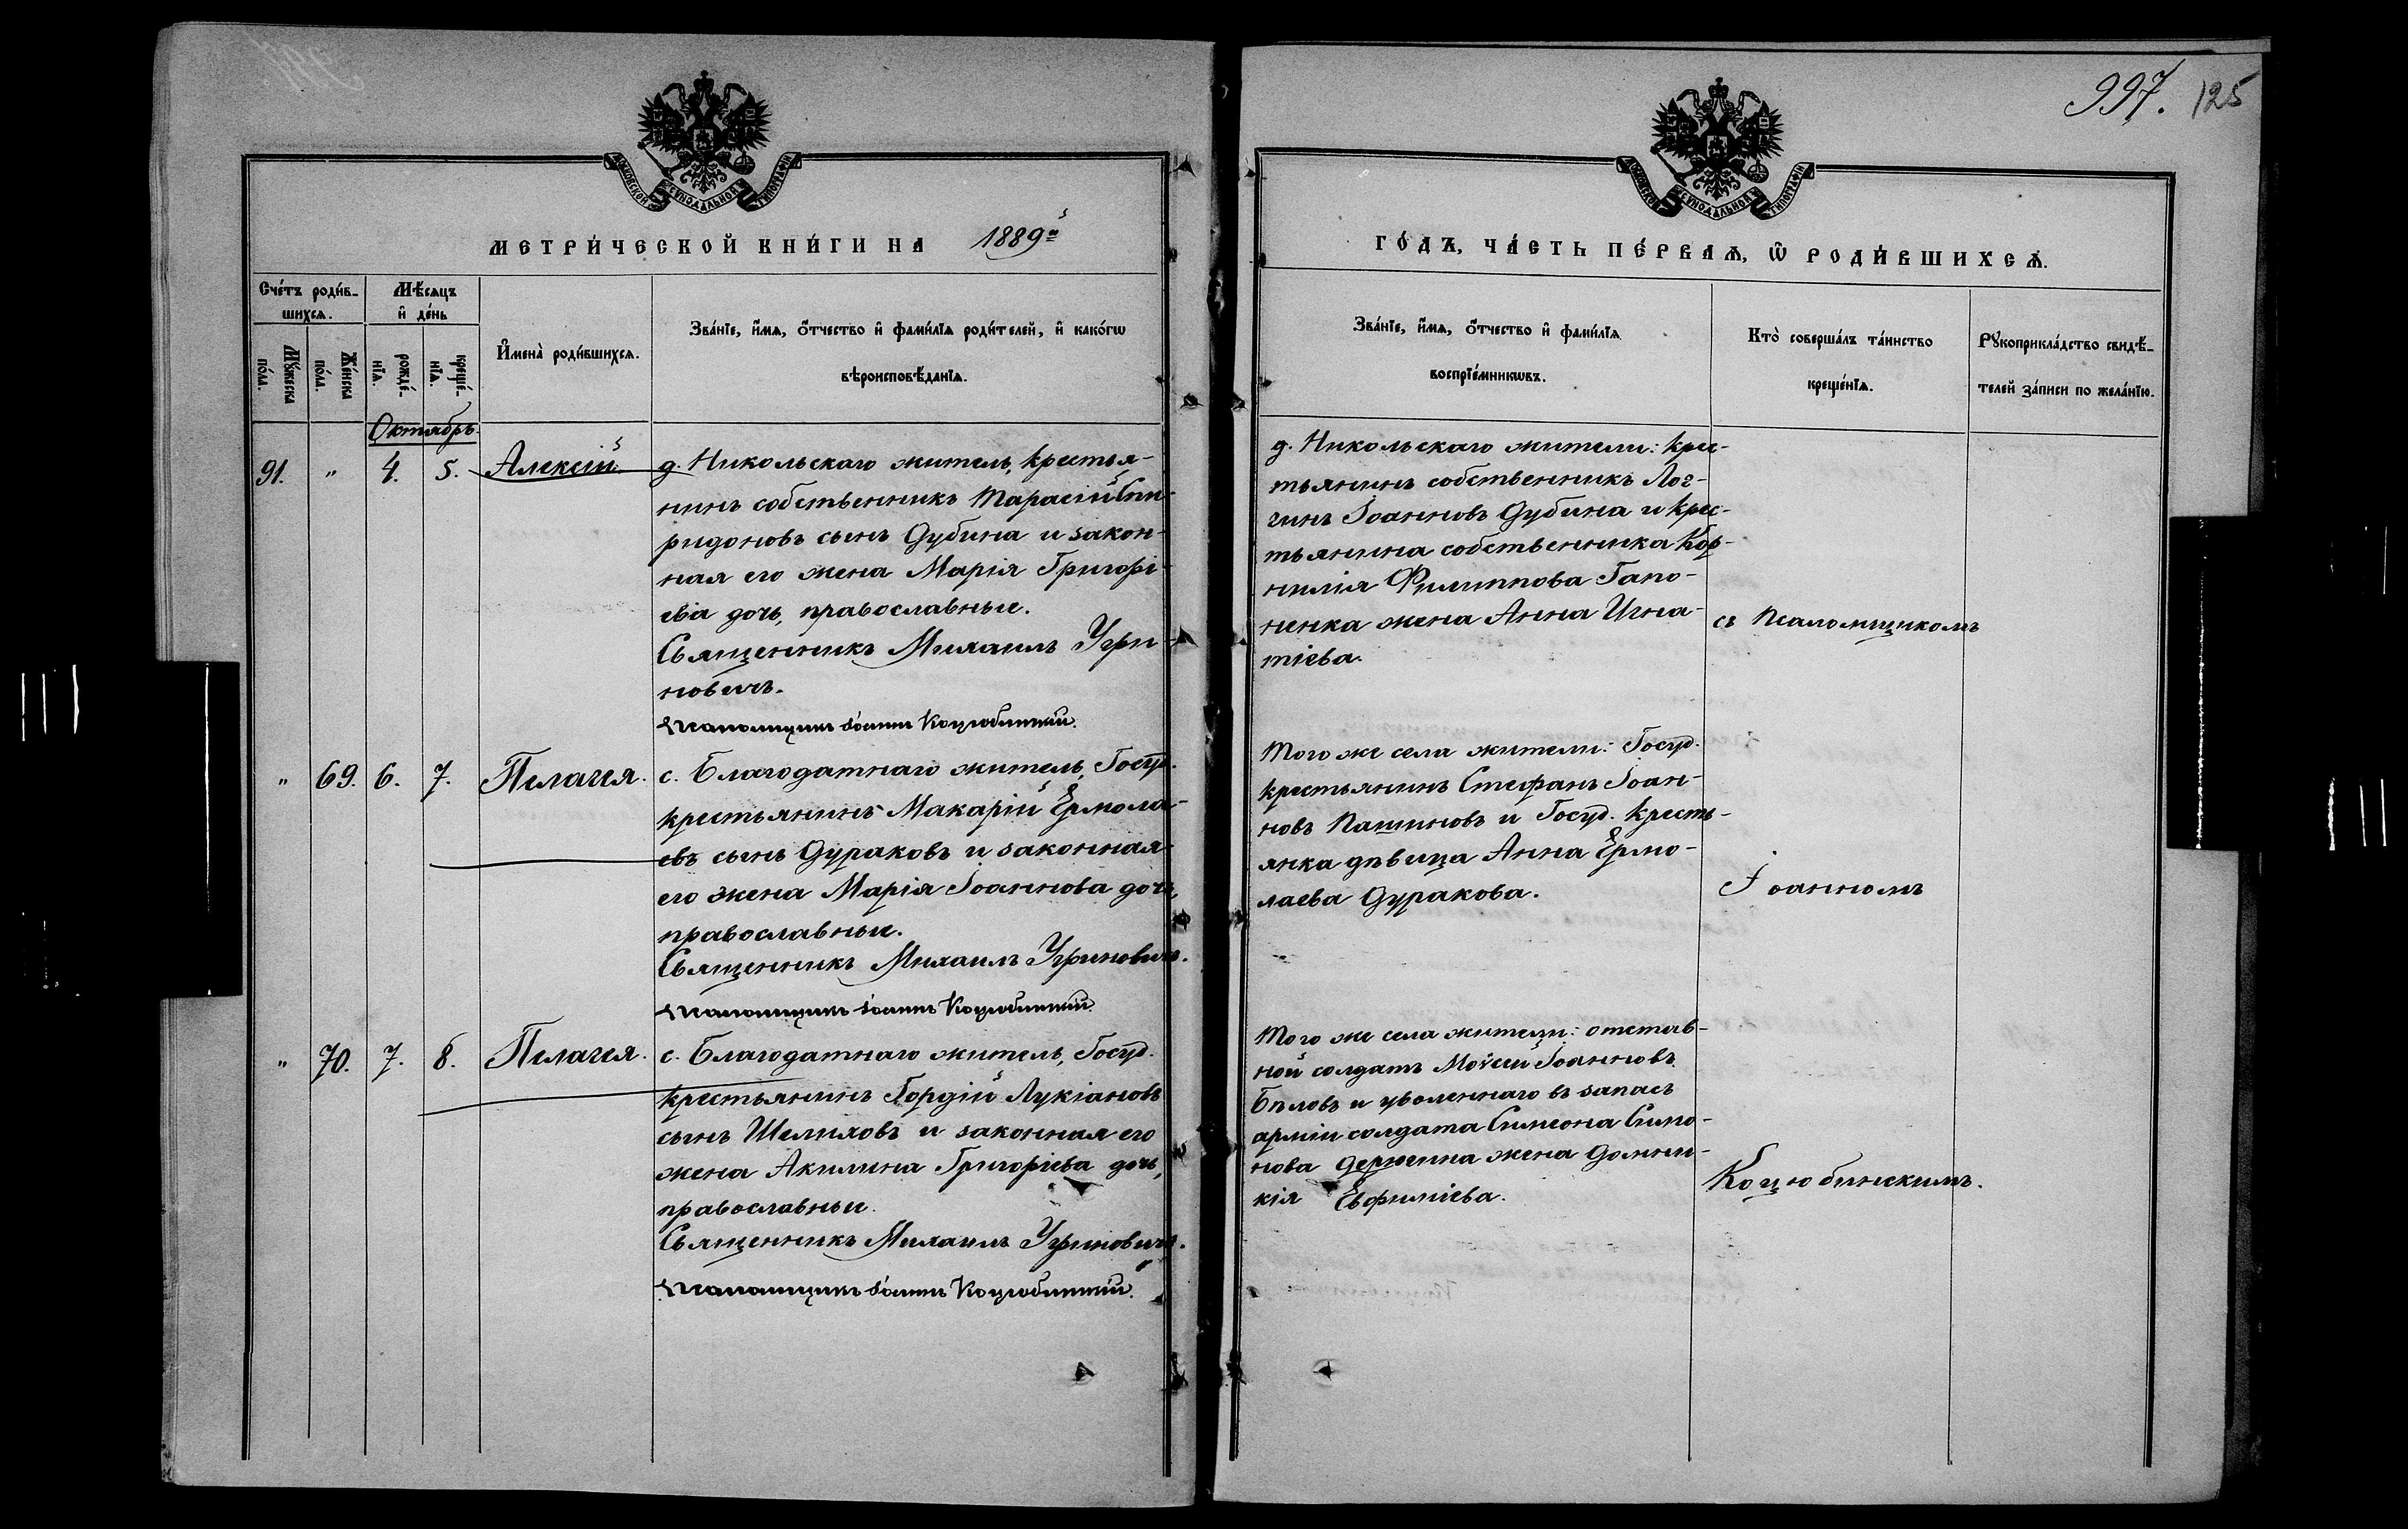 997. 125
МОСКОВСКОЙ СУНОДАЛЬНОЙ ТИПОГРАФІИ
МОСКОВСКОЙ СУНОДАЛЬНОЙ ТИПОГРАФІИ
МЕТРИ́ЧЕСКОЙ КНИ́ГИ НА 1889й
ГО́ДЪ, ЧА́СТЬ ПЕ́РВАѦ, Ѡ҆ РОДИ́ВШИХСѦ.
Сче́тъ роди́в-
шихсѧ.
Мꙋ́жеска по́ла.
Же́нска по́ла.
Мѣ́сѧцъ
и҆ де́нь
рожде́-нїѧ.
креще́-нїѧ.
И҆мена̀ роди́вшихсѧ.
Зва́нїе, и҆́мѧ, ѻ҆́тчество и҆ фами́лїѧ роди́телей, и҆ како́гѡ
вѣроисповѣ́данїѧ.
Зва́нїе, и҆́мѧ, ѻ҆́тчество и҆ фами́лїѧ
воспрїе́мникѡвъ.
Кто̀ соверша́лъ та́инство
креще́нїѧ.
Рꙋкоприкла́дство свидѣ́-
телей за́писи по жела́нїю.
Октябрь
91. " 4. 5. Алексій
д. Никольскаго житель, крестья-
нинъ собственникъ Тарасій Спи-
ридоновъ сынъ Дубина и закон-
ная его жена Марія Григорі-
ева дочь, православные.
Священникъ Михаилъ Угри
новичъ.
Псаломщикъ Іоаннъ Коцюбинскій.
д. Никольскаго жители: крес-
тьянинъ собственникъ Лог-
гинъ Іоанновъ Дубина и крес-
тьянина собственника Кор-
нилія Филиппова Гапо-
ненка жена Анна Игна-
тіева.
съ Псаломщикомъ
" 69. 6. 7. Пелагея.
с. Благодатнаго житель, Госуд.
крестьянинъ Макарій Ермола-
евъ сынъ Дураковъ и законная
его жена Марія Іоаннова дочь,
православные.
Священникъ Михаилъ Угриновичъ.
Псаломщикъ Іоаннъ Коцюбинскій.
Того же села жители: Госуд.
крестьянинъ Стефанъ Іоан-
новъ Пашиновъ и Госуд. кресть-
янка дѣвица Анна Ермо-
лаева Дуракова.
Іоанномъ
" 70. 7. 8. Пелагея.
с. Благодатнаго житель, Госуд.
крестьянинъ Гордій Лукіановъ
сынъ Шелиховъ и законная его
жена Акилина Григоріева дочь,
православные.
Священникъ Михаилъ Угриновичъ.
Псаломщикъ Іоаннъ Коцюбинскій.
Того же села жители: отстав-
ной солдатъ Моѵсей Іоанновъ
Бѣловъ и уволеннаго въ запасъ
арміи солдата Симеона Симо-
нова жена Домни-
кія Евфиміева.
Коцюбинскимъ.